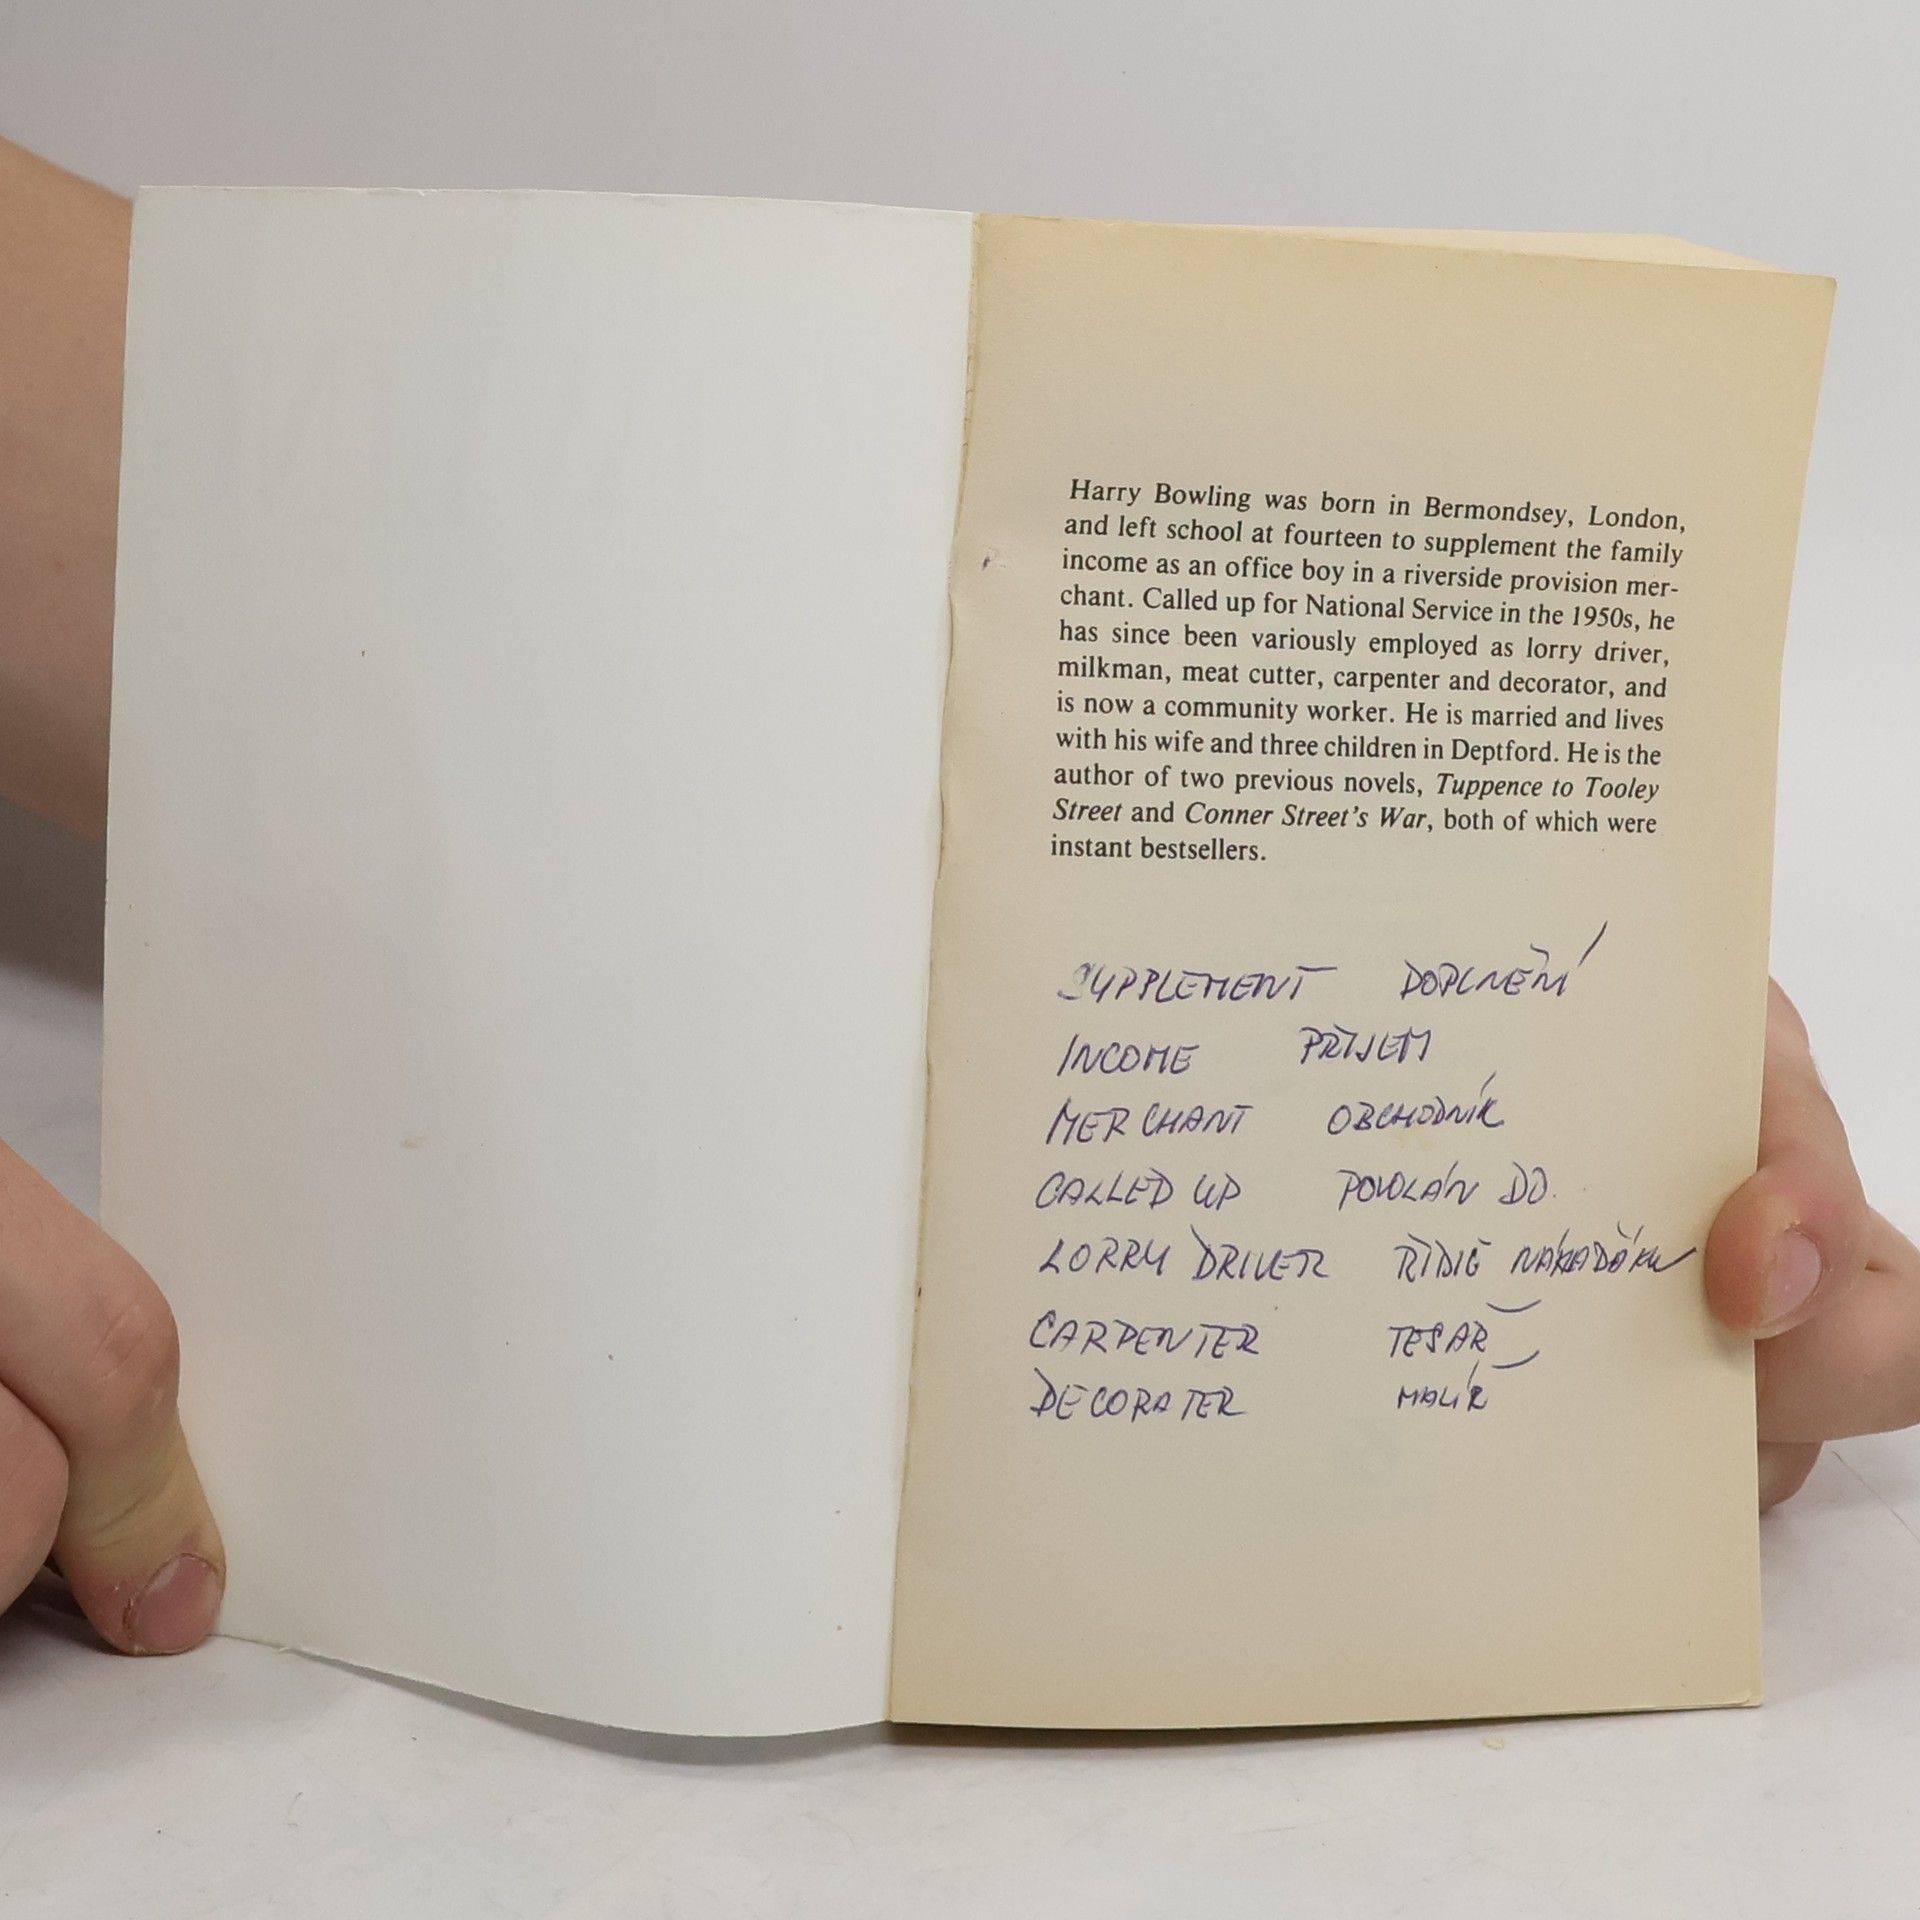 Harry Bowling was born in Bermondsey, London,
and left school at fourteen to supplement the family
income as an office boy in a riverside provision mer-
chant. Called up for National Service in the 1950s, he
has since been variously employed as lorry driver,
milkman, meat cutter, carpenter and decorator, and
is now a community worker. He is married and lives
with his wife and three children in Deptford. He is the
author of two previous novels, Tuppence to Tooley
Street and Conner Street's War, both of which were
instant bestsellers.
SUPPLEMENT DOPLNĚNÍ
INCOME PŘÍJEM
MERCHANT OBCHODNÍK
CALLED UP POVOLÁN DO.
LORRY DRIVER ŘIDIČ NÁKLAĎÁKU
CARPENTER TESAŘ
DECORATER MALÍŘ